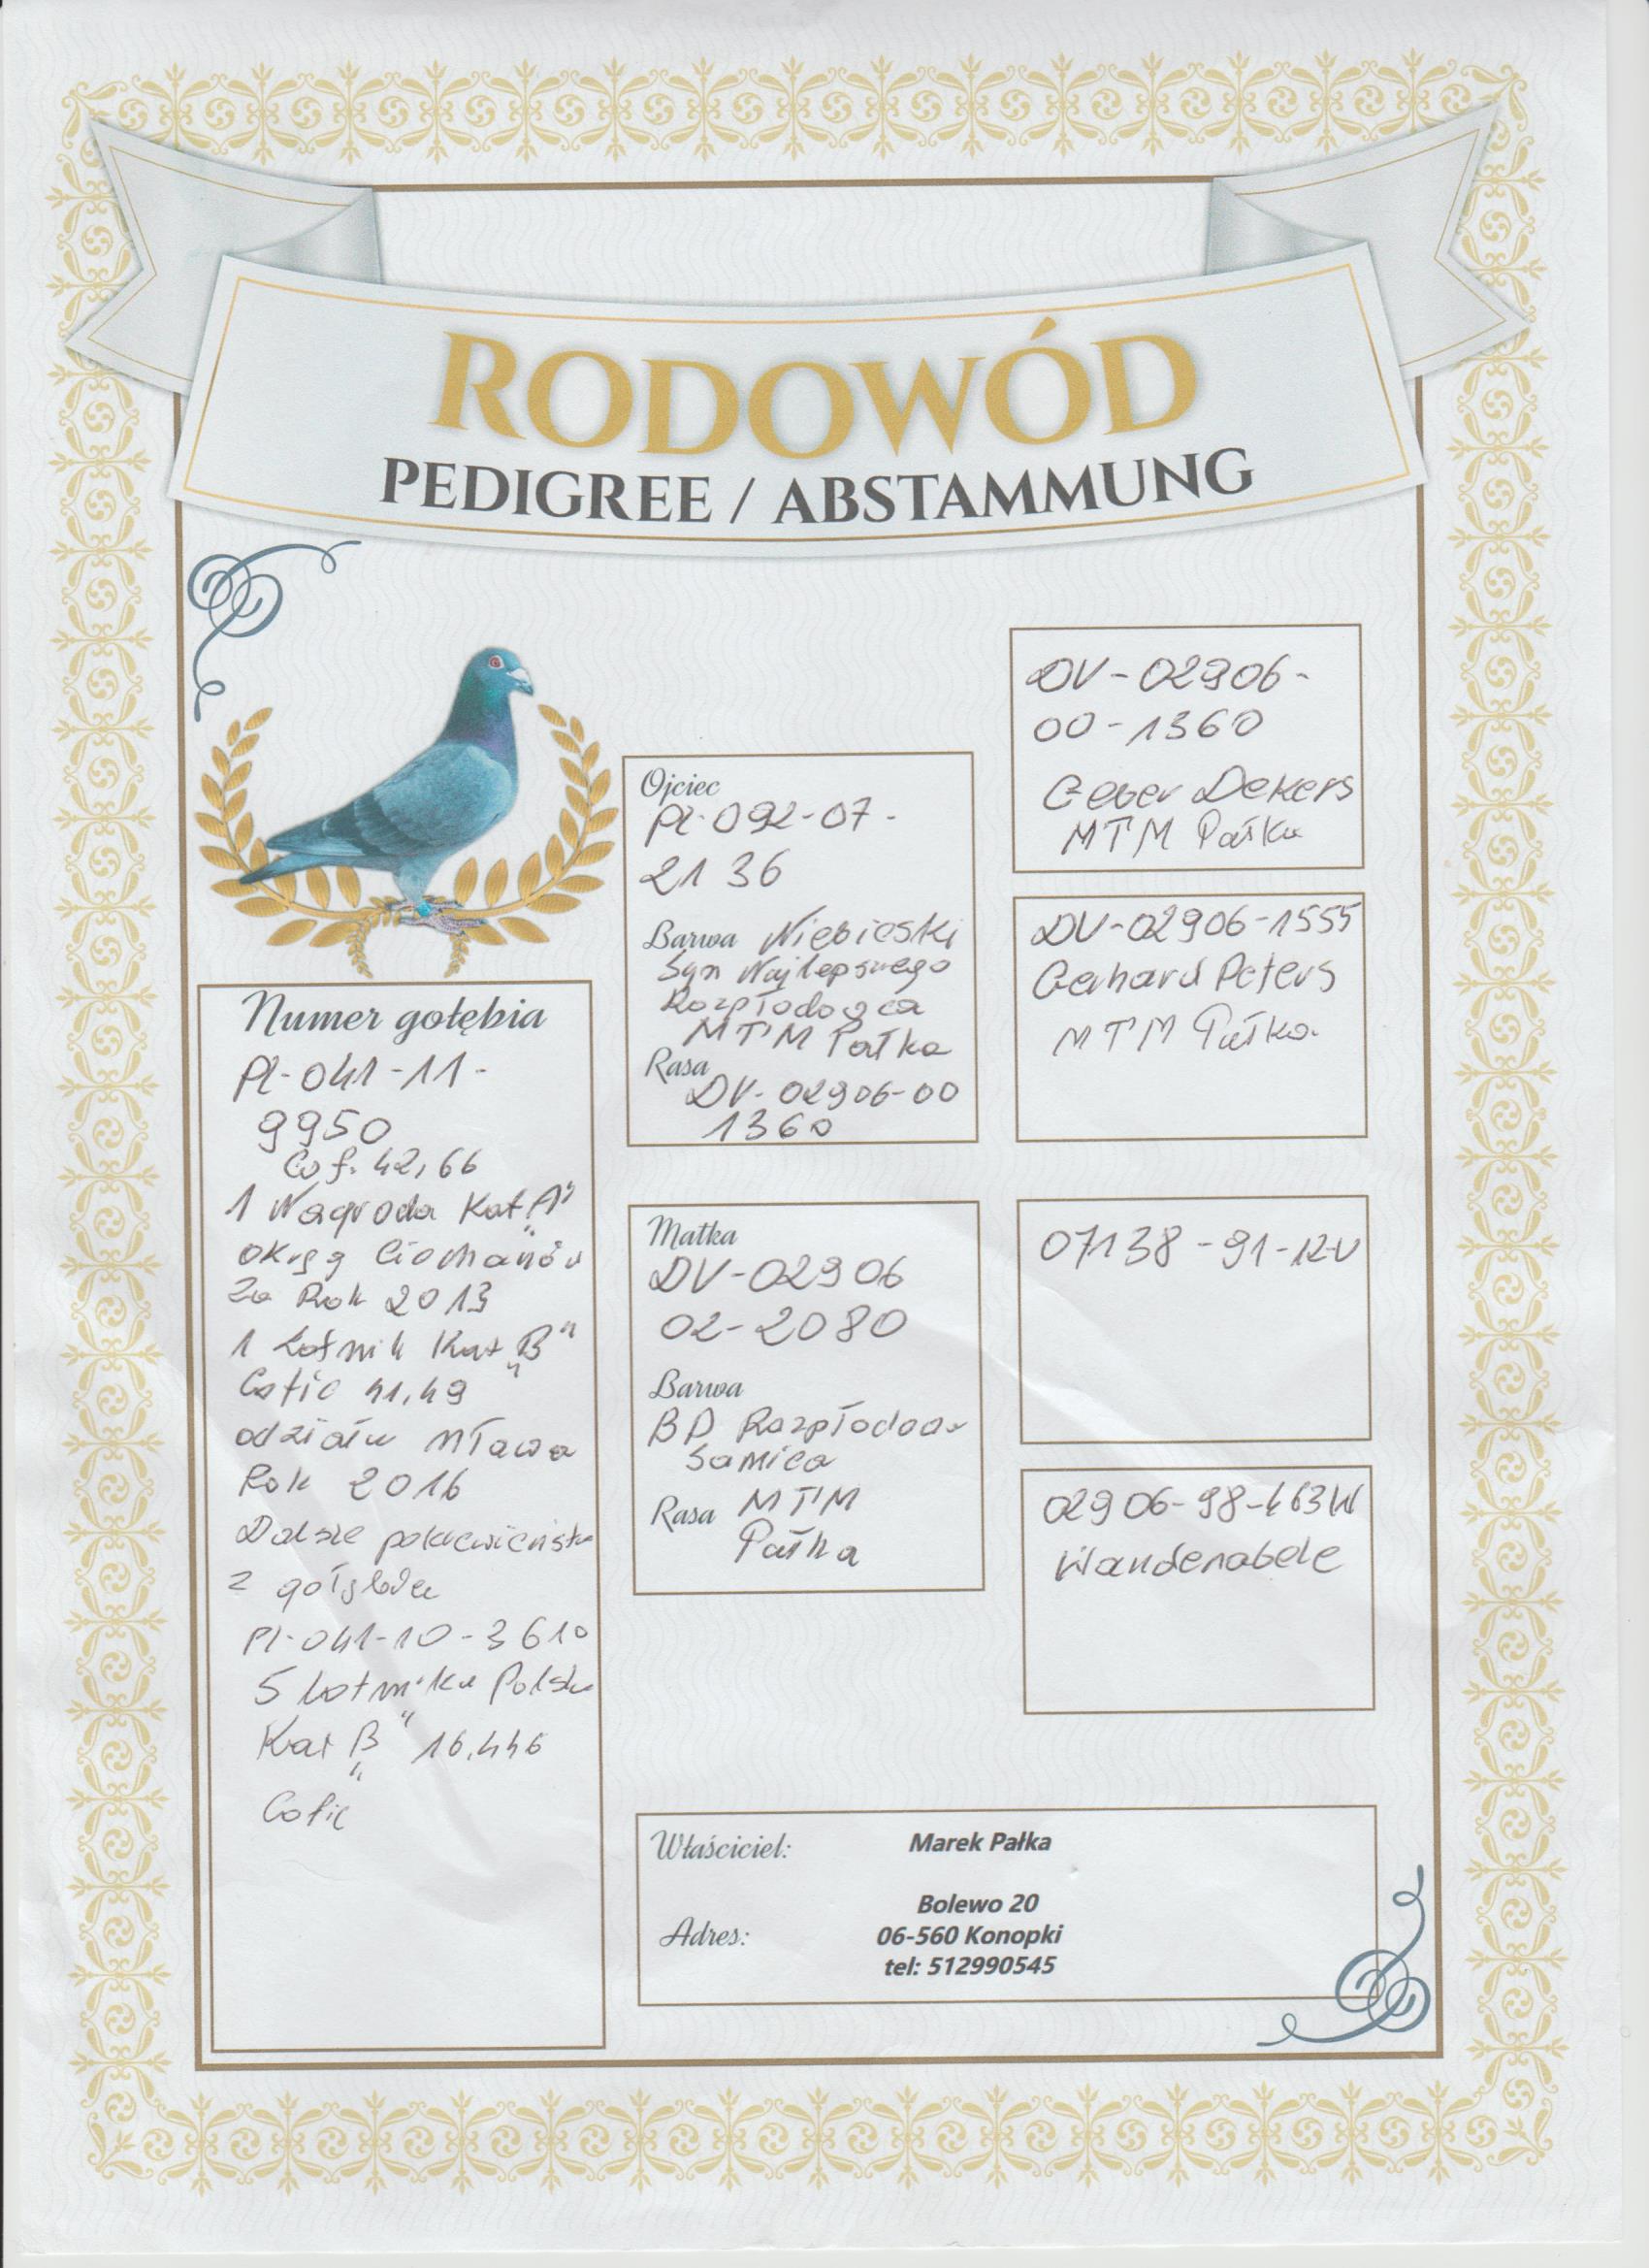 RODOWÓD
PEDIGREE / ABSTAMMUNG
Numer gołębia
Pl-041-11-
9950
Cof. 42,66
1 Nagroda Kat „A"
okręg Ciechanów
Za Rok 2013
1 Lotnik Kat „B"
Cofic 41,49
odziału Mława
Rok 2016
Dalsze pokrewieństw
z gołębiem
Pl-041-10-3610
5 Lotnika Polski
Kat „B" 16,446
Cofic
Ojciec
Pl-092-07-
2136
Barwa Niebieski
Syn Najlepszego
Rozpłodowca
MTM Pałka
Rasa
DV-02906-00
1360
Matka
DV-02906
02-2080
Barwa
BD Rozpłodowa
Samica
Rasa MTM
Pałka
DV-02906-
00-1360
Geber Dekers
MTM Pałka
DV-02906-1555
Gerhard Peters
MTM Pałka
07138-91-
02906-98-463W
Wandenabele
Właściciel: Marek Pałka
Bolewo 20
Adres: 06-560 Konopki
tel: 512990545